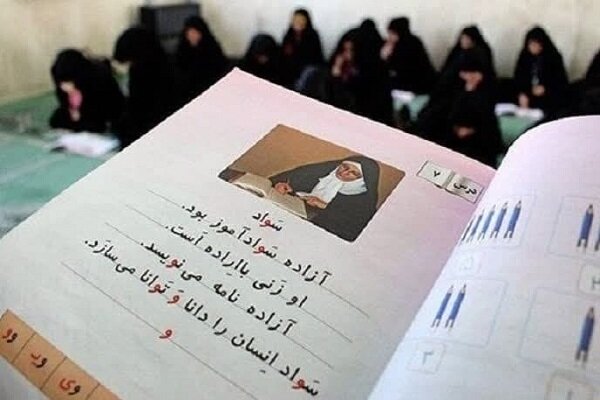 درس ۷
سَواد
آزاده سَوادآموز بود.
او زَنی بااِراده اَست.
آزاده نامه می‌نویسد.
سَواد اِنسان را دانا وَ تَوانا می‌سازَد.
و
وی وب وو